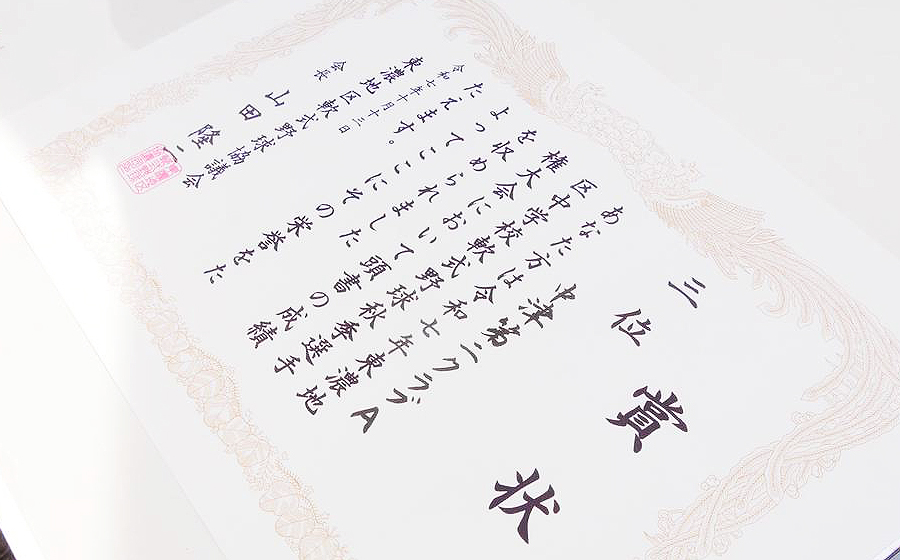 賞状
三位
中津第二クラブA
あなた方は令和七年東濃地
区中学校軟式野球秋季選手
権大会において頭書の成績
を収められました
よってここにその栄誉をた
たえます。
令和七年十月十三日
東濃地区軟式野球協議会
会長 山田隆